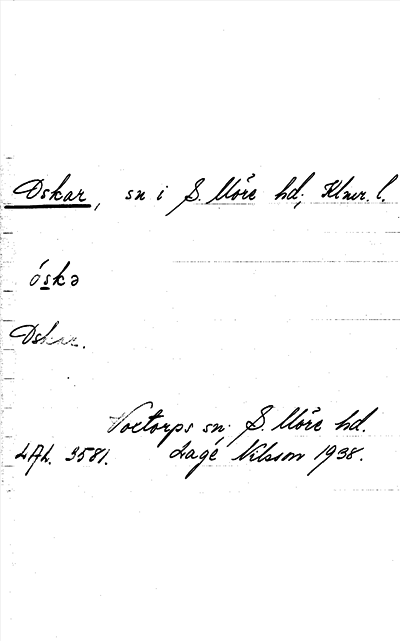 Oskar, sn i S. Möre hd; Klmr. l.
óskə
Oskar.
Voxtorps sn. S. Möre hd.
LAL. 3581. Lage Nilsson 1938.